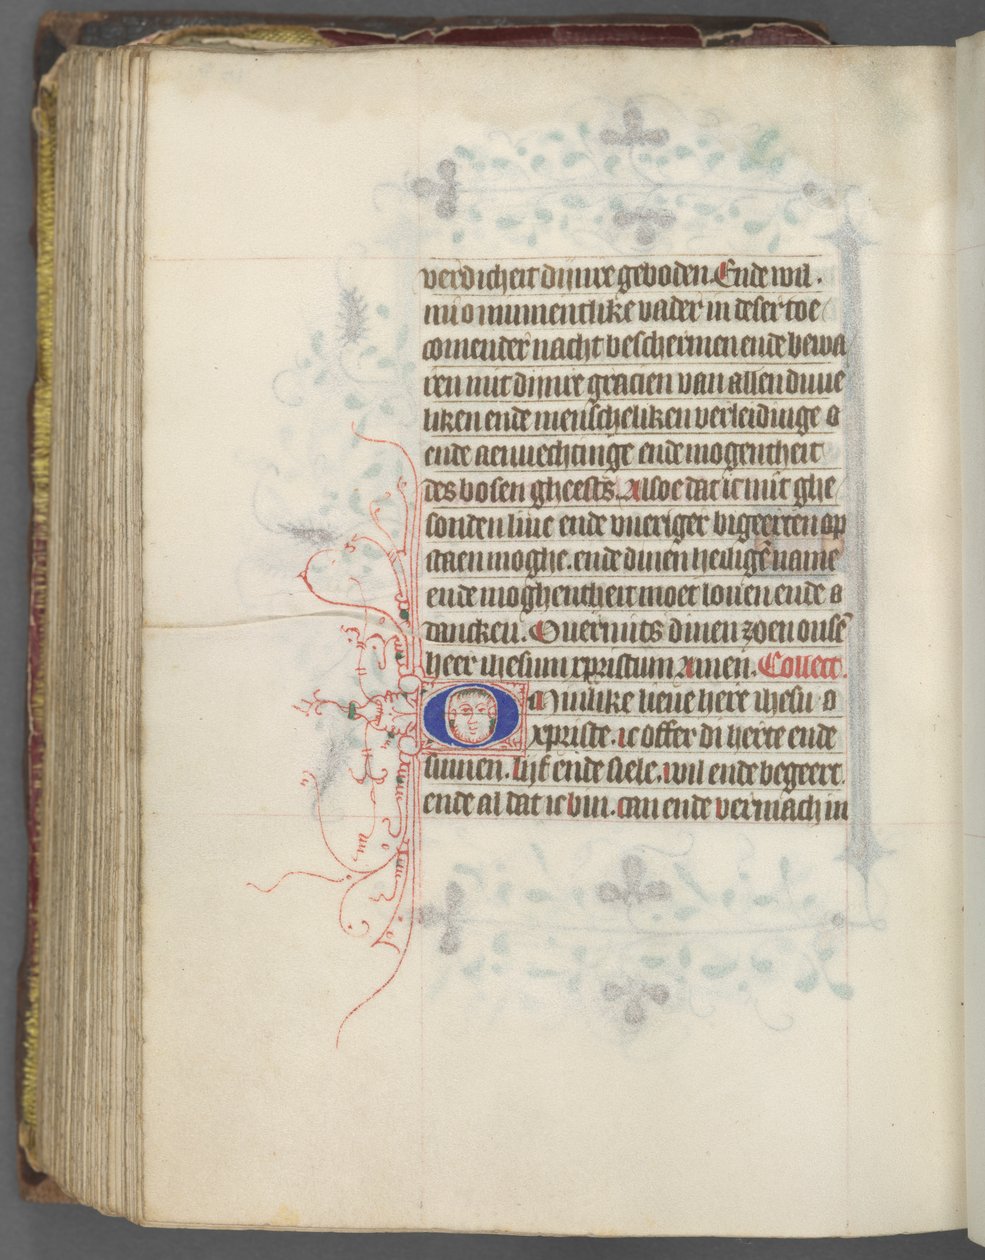 verdicheit dijnre geboden. Ende wil.
mi o mīmentlike vader in deser toe
comender nacht beschermen ende bewa
ren mit dijnre gracien van allen duue
liken ende menscheliken verleidinge
ende aenuechtinge ende mogentheit
des bosen gheests. Alsoe dat ic mit ghe
sonden liue ende vueriger bigeerten op
staen moghe. ende dinen heiligē name
ende moghentheit moet louen ende
dancken. Ouermits dinen zoen onsē
heer ihesum xpristum Amen. Collect.
O Minlike lieue here ihesu
xpriste. ic offer di herte ende
sinnen. lijf ende siele. wil ende begeert.
ende al dat ic bin. can ende vermach in